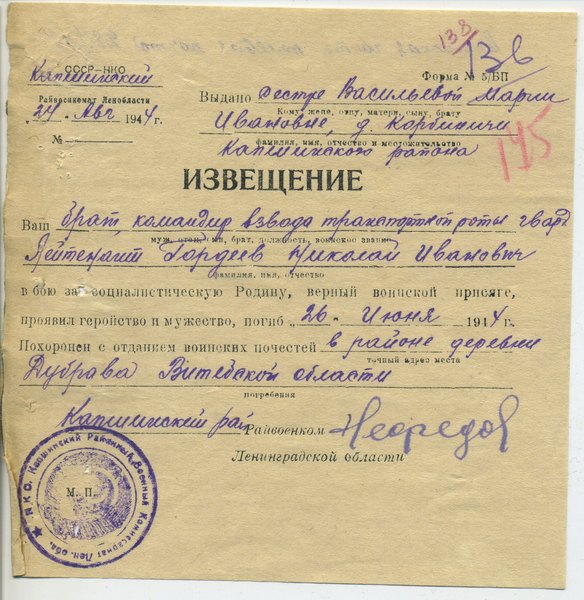 138
136
СССР—НКО
Капшинский
Райвоенкомат Ленобласти
„24“ Авг 1944 г.
№
Форма № 5/БП
Выдано сестре Васильевой Марии
Кому: жене, отцу, матери, сыну, брату
Ивановне, д. Корбиничи
фамилия, имя, отчество и местожительство
Капшинского района
145
ИЗВЕЩЕНИЕ
Ваш брат, командир взвода транспортной роты гвард.
муж, отец, сын, брат, должность, воинское звание
Лейтенант Гордеев Николай Иванович
фамилия, имя, отчество
в бою за социалистическую Родину, верный воинской присяге,
проявил геройство и мужество, погиб „26“ Июня 1944 г.
Похоронен с отданием воинских почестей в районе деревни
точный адрес места
Дубрава Витебской области
погребения
Капшинский рай Райвоенком
Ленинградской области
М. П.
Н.К.О. Капшинский Районный Военный Комиссариат Лен. обл.